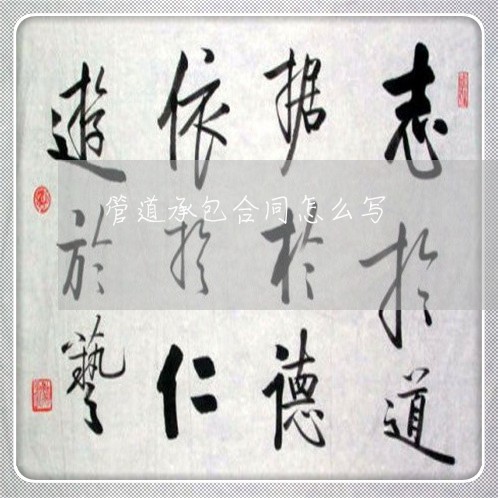 志於道
据於德
依於仁
遊於藝
管道承包合同怎么写